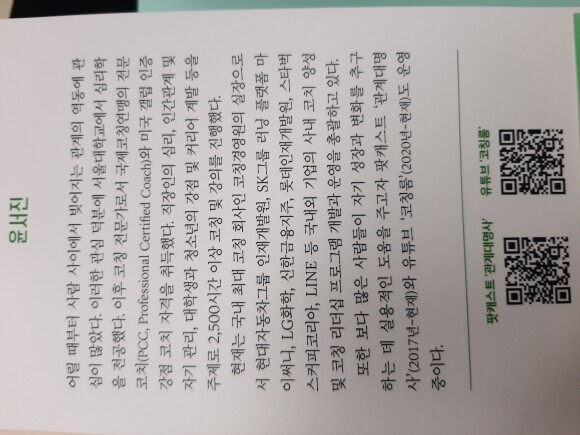 윤서진
어릴 때부터 사람 사이에서 빚어지는 관계의 역동에 관
심이 많았다. 이러한 관심 덕분에 서울대학교에서 심리학
을 전공했다. 이후 코칭 전문가로서 국제코칭연맹의 전문
코치(PCC, Professional Certified Coach)와 미국 갤럽 인증
강점 코치 자격을 취득했다. 직장인의 심리, 인간관계 및
자기 관리, 대학생과 청소년의 강점 및 커리어 개발 등을
주제로 2,500시간 이상 코칭 및 강의를 진행했다.
현재는 국내 최대 코칭 회사인 코칭경영원의 실장으로
서 현대자동차그룹 인재개발원, SK그룹 러닝 플랫폼 마
이써니, LG화학, 신한금융지주, 롯데인재개발원, 스타벅
스커피코리아, LINE 등 국내외 기업의 사내 코치 양성
및 코칭 리더십 프로그램 개발과 운영을 총괄하고 있다.
또한 보다 많은 사람들이 자기 성장과 변화를 추구
하는 데 실용적인 도움을 주고자 팟캐스트 '관계대명
사'(2017년-현재)와 유튜브 '코칭룸'(2020년-현재)도 운영
중이다.
팟캐스트 '관계대명사'
유튜브 '코칭룸'